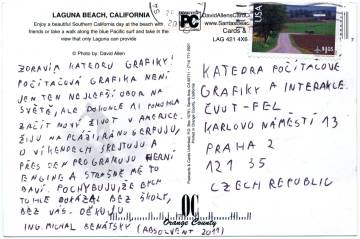 LAGUNA BEACH, CALIFORNIA
Enjoy a beautiful Southern California day at the beach with
friends or take a walk along the blue Pacific surf and take in the
view that only Laguna can provide
© Photo by: David Allen
ZDRAVÍM KATEDRU GRAFIKY!
POČÍTAČOVÁ GRAFIKA NENÍ
JEN TEN NEJLEPŠÍ OBOR NA
SVĚTĚ, ALE DOKONCE MI POMOHLA
ZAČÍT NOVÝ ŽIVOT V AMERICE.
ŽIJU NA PLÁŽI, RÁNO SERFUJU,
O VÍKENDECH SKEJTUJU A
PŘES DEN PROGRAMUJU HERNÍ
ENGINE A STRAŠNĚ MĚ TO
BAVÍ. POCHYBUJU, ŽE BYCH
TOHLE DOKÁZAL BEZ ŠKOLY,
BEZ VÁS. DĚKUJU
ING. MICHAL BENÁTSKÝ (ABSOLVENT 2011)
PC
DavidAllensCards
Cards &
LAG 421 4X6
USA
KATEDRA POČÍTAČOVÉ
GRAFIKY A INTERAKCE
ČVUT - FEL
KARLOVO NÁMĚSTÍ 13
PRAHA 2
121 35
CZECH REPUBLIC
OC
Orange County